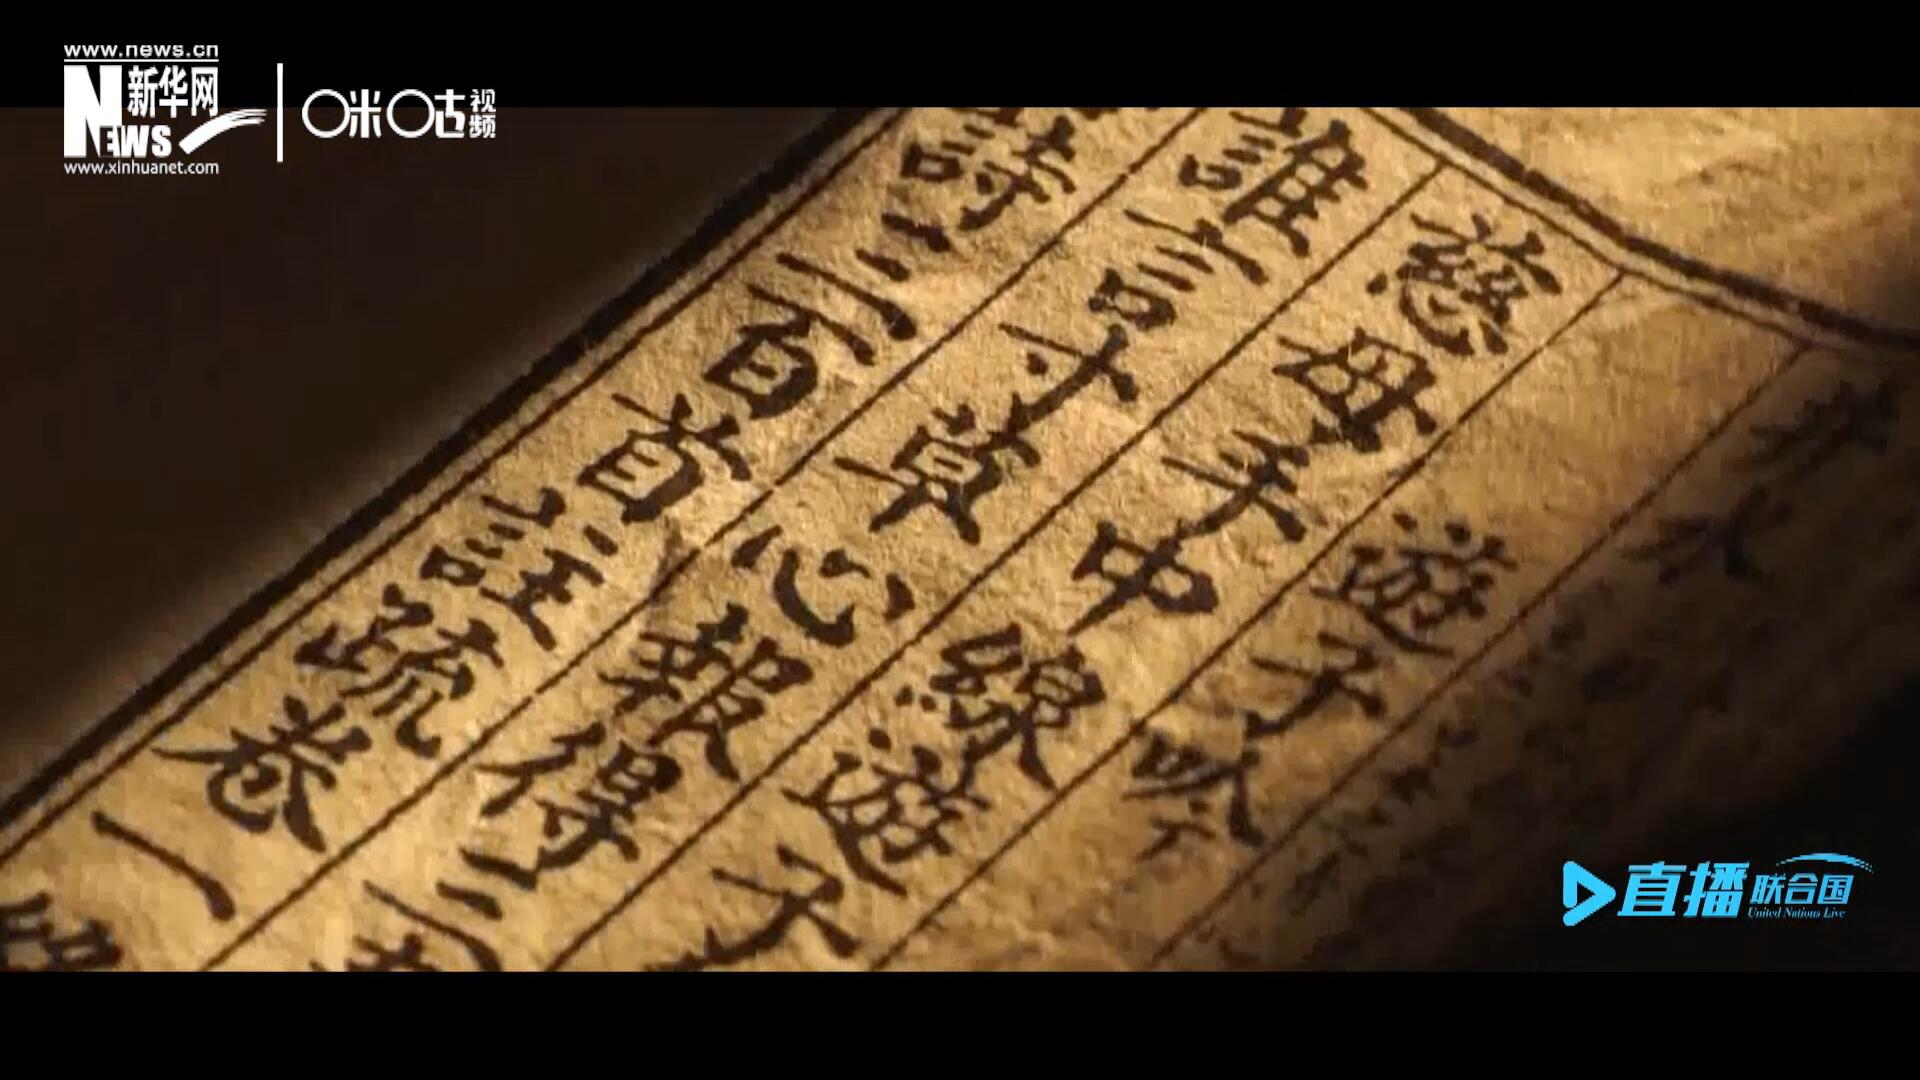 www.news.cn
新华网
NEWS
www.xinhuanet.com
咪咕视频
遊子吟
慈母手中線遊子
誰言寸草心報得三
詩三百首註疏卷一
直播联合国
United Nations Live